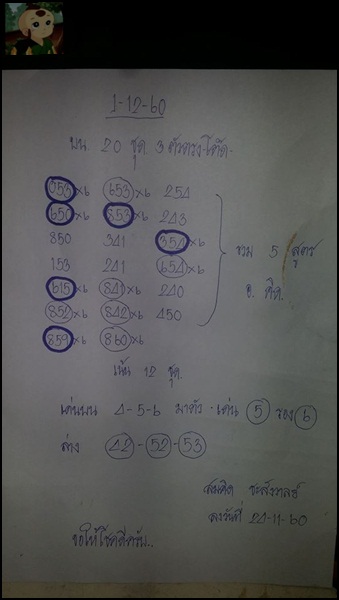 1-12-60
บน 20 ชุด 3 ตัวตรง-โต๊ด-
053×6 653×6 254
650×6 853×6 243
850 341 354×6
153 241 654×6
615×6 841×6 240
852×6 842×6 450
859×6 860×6
รวม 5 สูตร
อ. คิด.
เน้น 12 ชุด
เด่นบน 4-5-6 มาตัว-เด่น 5 รอง 6
ล่าง 42-52-53
สมคิด
ลงวันที่ 24-11-60
ขอให้โชคดีครับ..